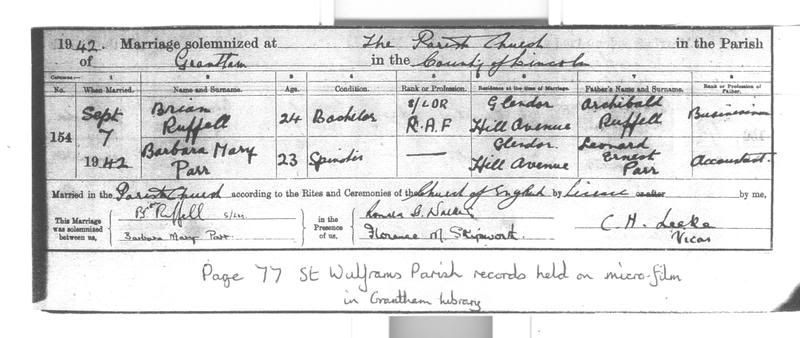 1942. Marriage solemnized at The Parish Church in the Parish
of Grantham in the County of Lincoln
Columns:— 1 2 3 4 5 6 7 8
No. When Married. Name and Surname. Age. Condition. Rank or Profession. Residence at the time of Marriage. Father's Name and Surname. Rank or Profession of Father.
154 Sept 7 1942 Brian Ruffell 24 Bachelor S/LDR R.A.F Glendor Hill Avenue Archibald Ruffell
Barbara Mary Parr 23 Spinster — Glendor Hill Avenue Leonard Ernest Parr Accountant.
Married in the Parish Church according to the Rites and Ceremonies of the Church of England by Licence by me,
This Marriage was solemnized between us, Ruffell
Barbara Mary Parr
in the Presence of us,
Florence M. Skipworth.
C. H. Leeke
Vicar
Page 77 St Wulframs Parish records held on micro-film
in Grantham Library